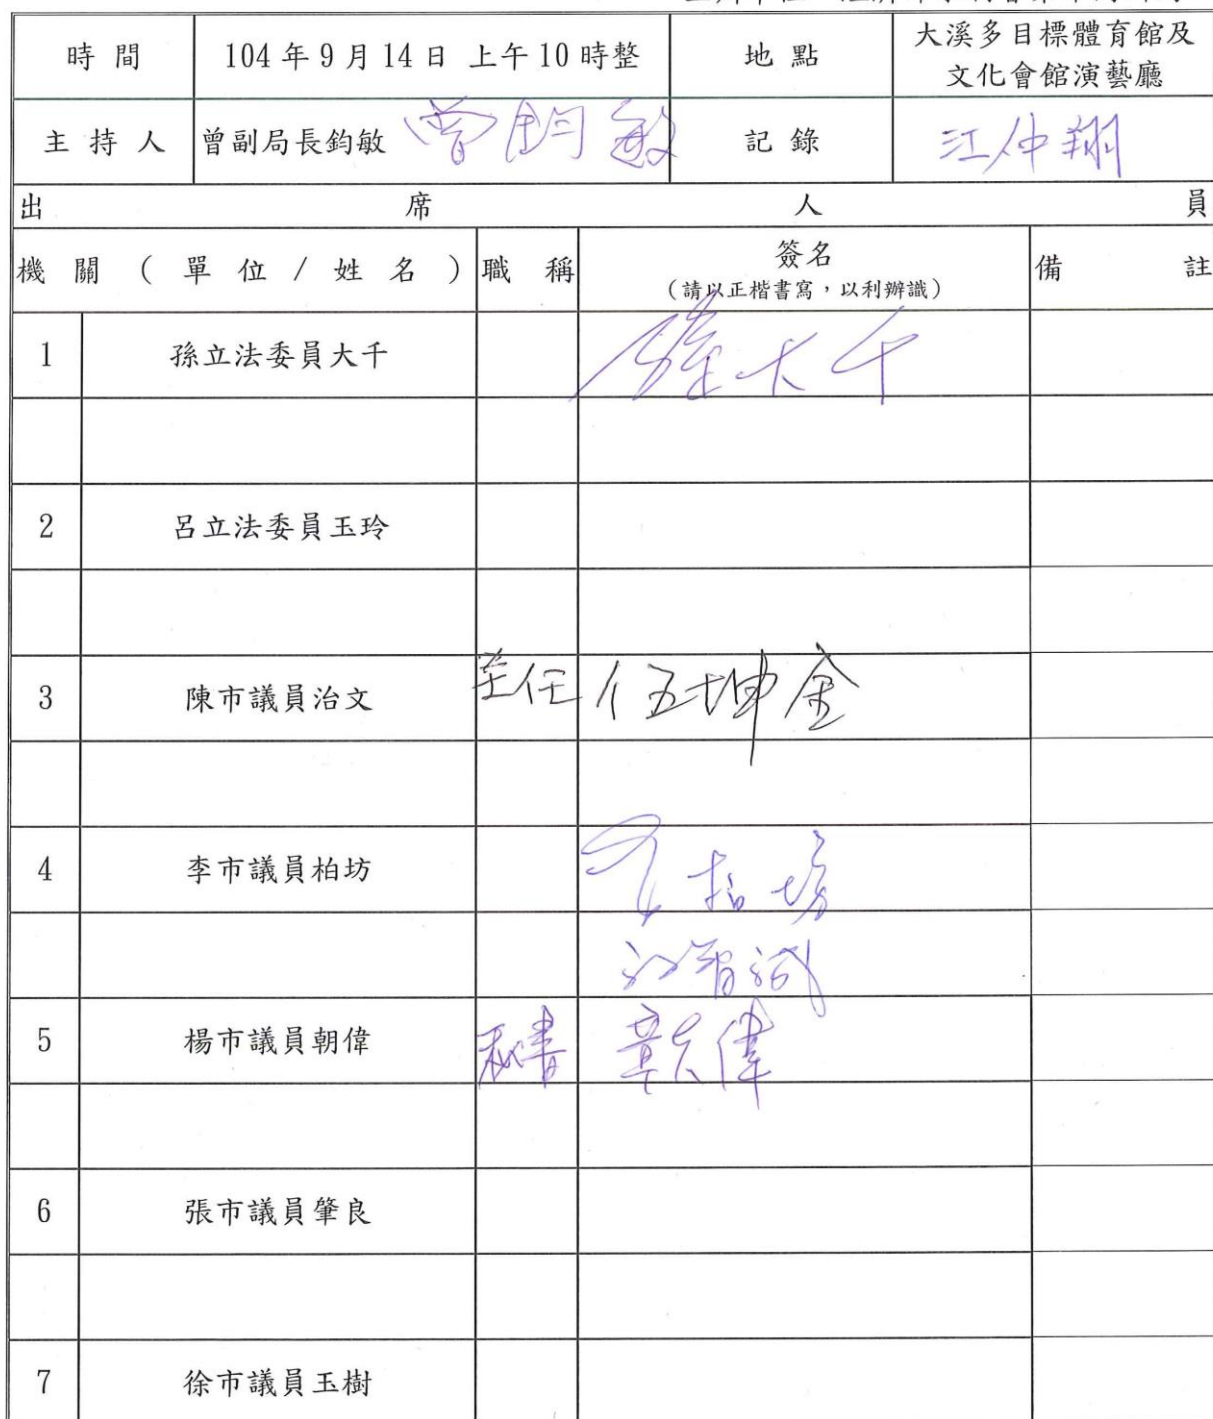 時間 104年9月14日 上午10時整 地點 大溪多目標體育館及
文化會館演藝廳
主持人 曾副局長鈞敏 曾鈞敏 記錄 江仲翔
出席人員
機關(單位/姓名) 職稱 簽名 備註
(請以正楷書寫,以利辨識)
1 孫立法委員大千 孫大千
2 呂立法委員玉玲
3 陳市議員治文 主任 伍坤金
4 李市議員柏坊 李柏坊
5 楊市議員朝偉 秘書
6 張市議員肇良
7 徐市議員玉樹